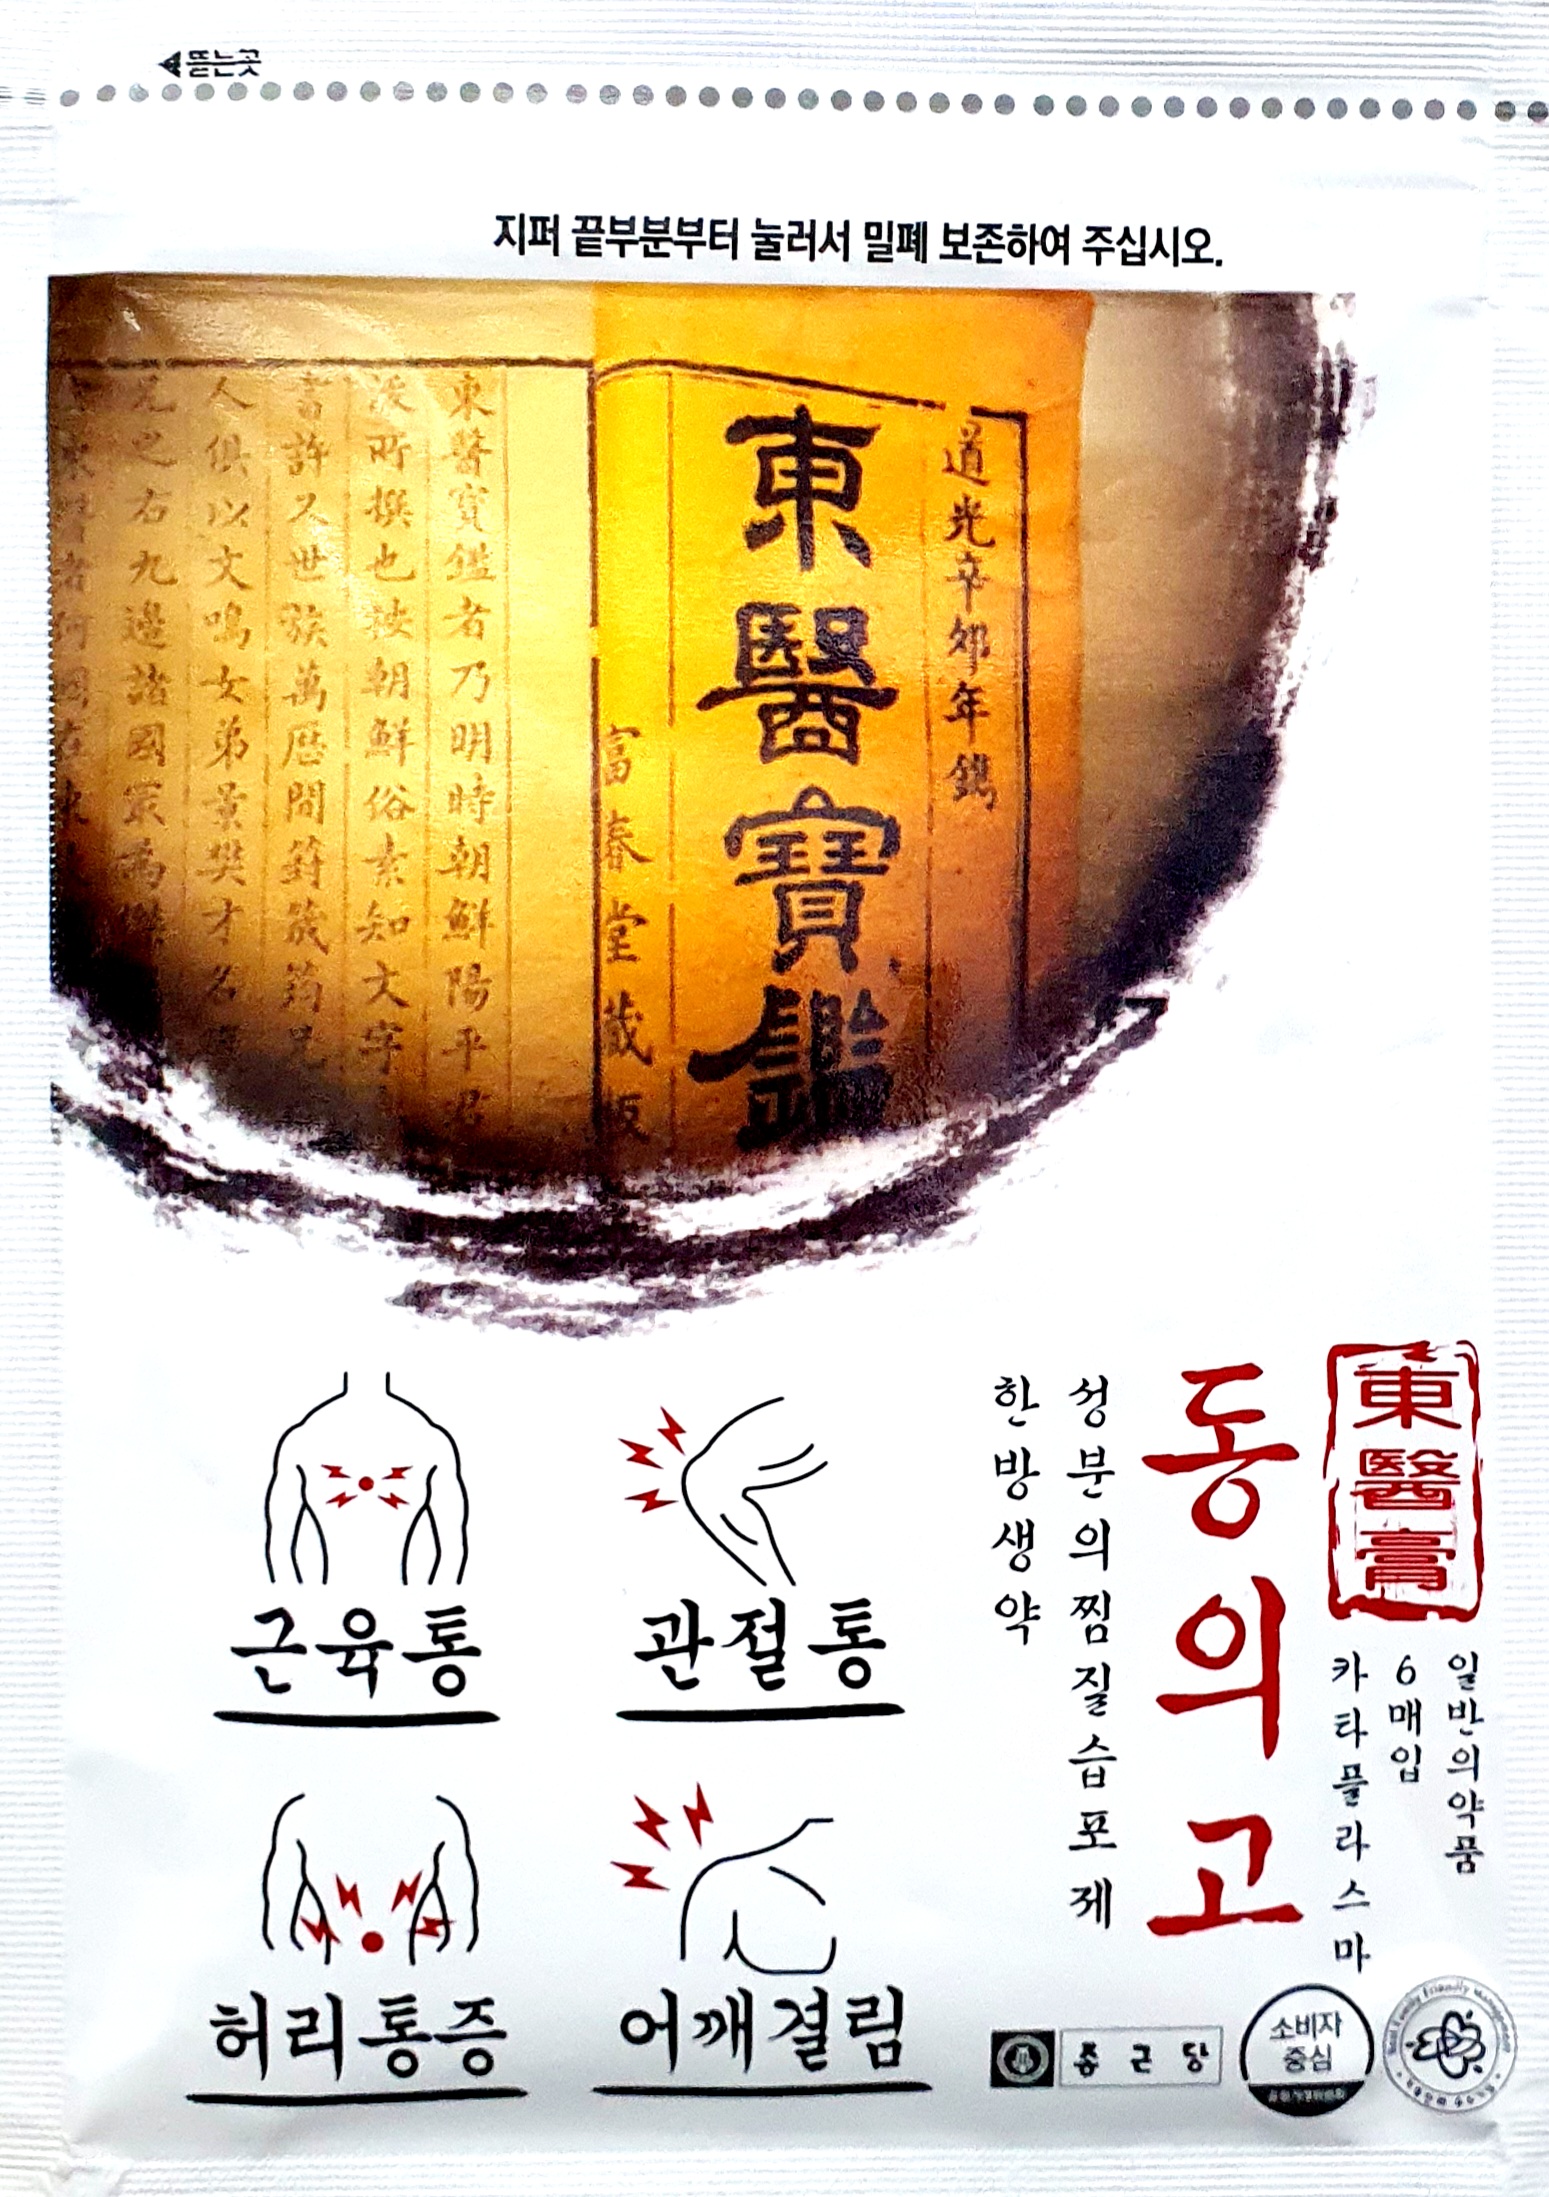 뜯는곳
지퍼 끝부분부터 눌러서 밀폐 보존하여 주십시오.
道光辛卯年鐫
東醫寶鑑
富春堂藏板
東醫寶鑑者乃明時朝鮮陽平君
所撰也被朝鮮俗素知文字
書許又世族萬歷間葑筬筠兄
人俱以文鳴女弟景樊才名
兄之右九邊諸國㝡為
東醫膏
일반의약품
6매입
카타플라스마
동의고
성분의찜질습포제
한방생약
근육통
관절통
허리통증
어깨결림
종근당
소비자
중심
공정거래위원회
Best Family Friendly Management